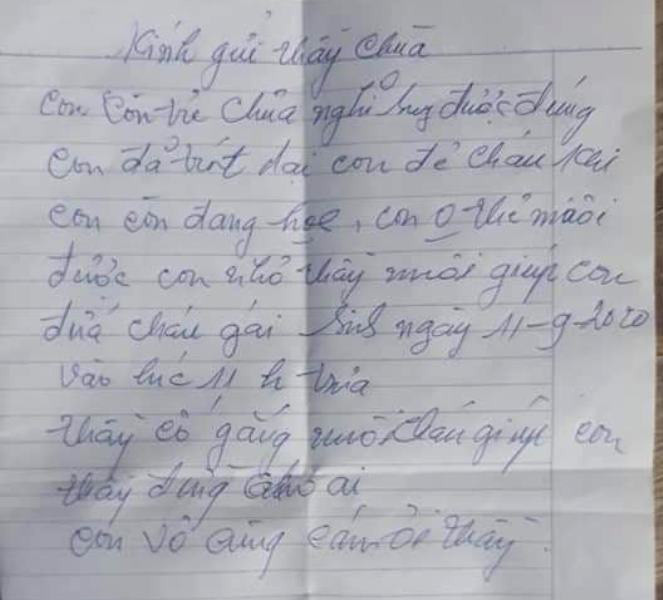 Kính gửi thầy chùa
con còn trẻ chưa nghĩ suy được đúng
con đã trót dại con đẻ cháu khi
con còn đang học, con 0 thể nuôi
được con nhờ thầy nuôi giúp con
đứa cháu gái sinh ngày 11-9-2020
vào lúc 11 h trưa
thầy cố gắng nuôi cháu giúp con
thầy đừng cho ai
con vô cùng cám ơn thầy.